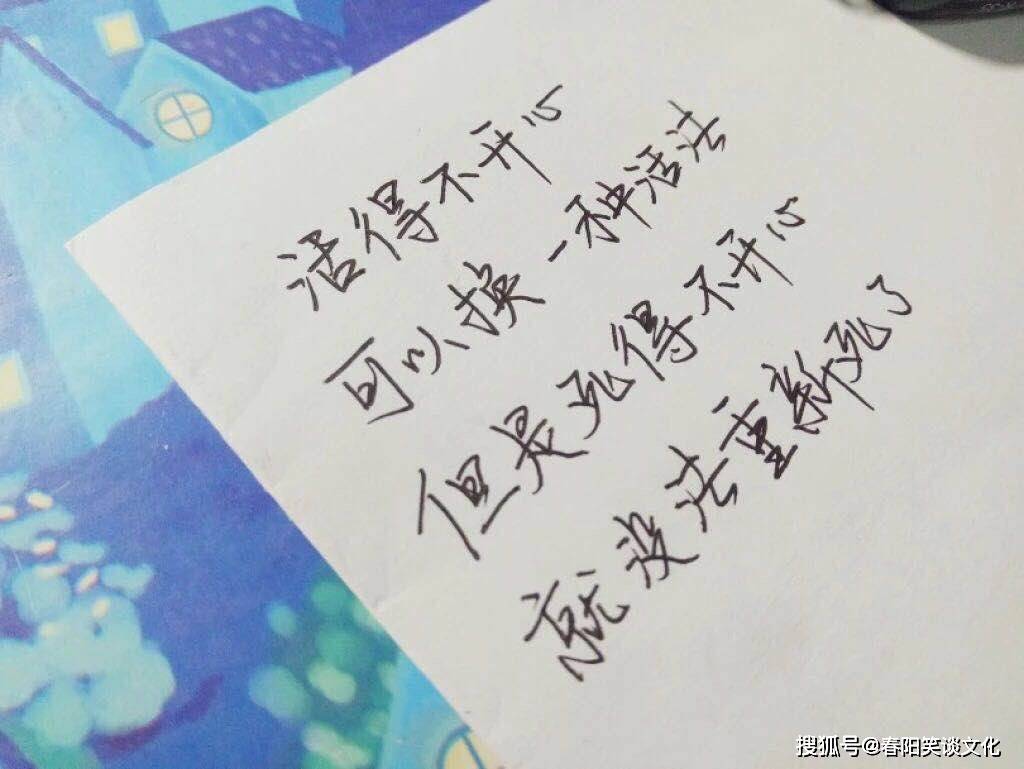 活得不开心
可以换一种活法
但是死得不开心
就没法重新死了
搜狐号@春阳笑谈文化